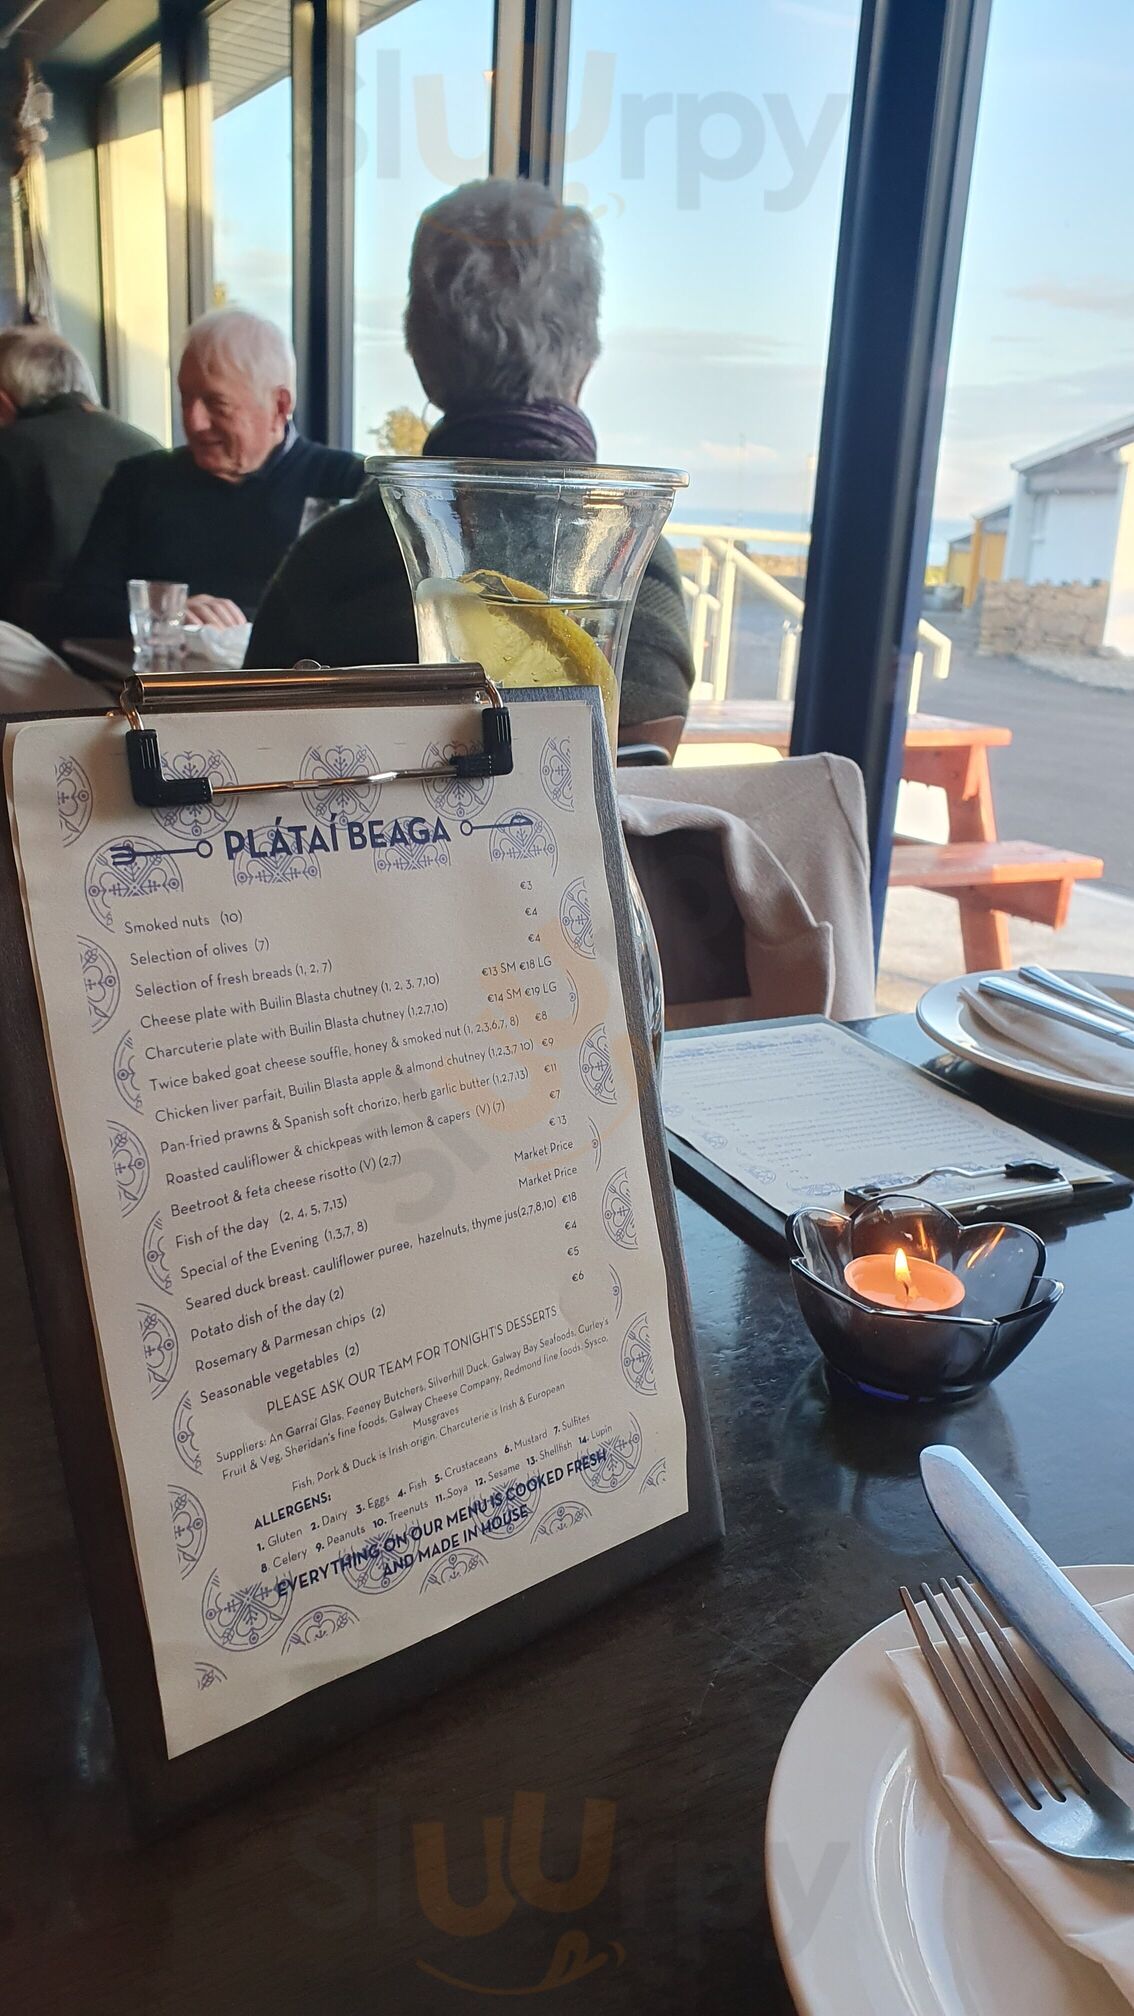 Sluurpy
PLÁTAÍ BEAGA
Smoked nuts (10) €3
Selection of olives (7) €4
Selection of fresh breads (1, 2, 7) €4
Cheese plate with Builin Blasta chutney (1, 2, 3, 7,10) €13 SM €18 LG
Charcuterie plate with Builin Blasta chutney (1,2,7,10) €14 SM €19 LG
Twice baked goat cheese souffle, honey & smoked nut (1, 2,3,6,7, 8) €8
Chicken liver parfait, Builin Blasta apple & almond chutney (1,2,3,7 10) €9
Pan-fried prawns & Spanish soft chorizo, herb garlic butter (1,2,7,13) €11
Roasted cauliflower & chickpeas with lemon & capers (V) (7) €7
Beetroot & feta cheese risotto (V) (2,7) €13
Fish of the day (2, 4, 5, 7,13) Market Price
Special of the Evening (1,3,7, 8) Market Price
Seared duck breast, cauliflower puree, hazelnuts, thyme jus(2,7,8,10) €18
Potato dish of the day (2) €4
Rosemary & Parmesan chips (2) €5
Seasonable vegetables (2) €6
PLEASE ASK OUR TEAM FOR TONIGHT'S DESSERTS
Suppliers: An Garraí Glas, Feeney Butchers, Silverhill Duck, Galway Bay Seafoods, Curley's
Fruit & Veg, Sheridan's fine foods, Galway Cheese Company, Redmond fine foods, Sysco,
Musgraves
Fish, Pork & Duck is Irish origin, Charcuterie is Irish & European
ALLERGENS:
1. Gluten 2. Dairy 3. Eggs 4. Fish 5. Crustaceans 6. Mustard 7. Sulfites
8. Celery 9. Peanuts 10. Treenuts 11. Soya 12. Sesame 13. Shellfish 14. Lupin
EVERYTHING ON OUR MENU IS COOKED FRESH
AND MADE IN HOUSE
Sluurpy